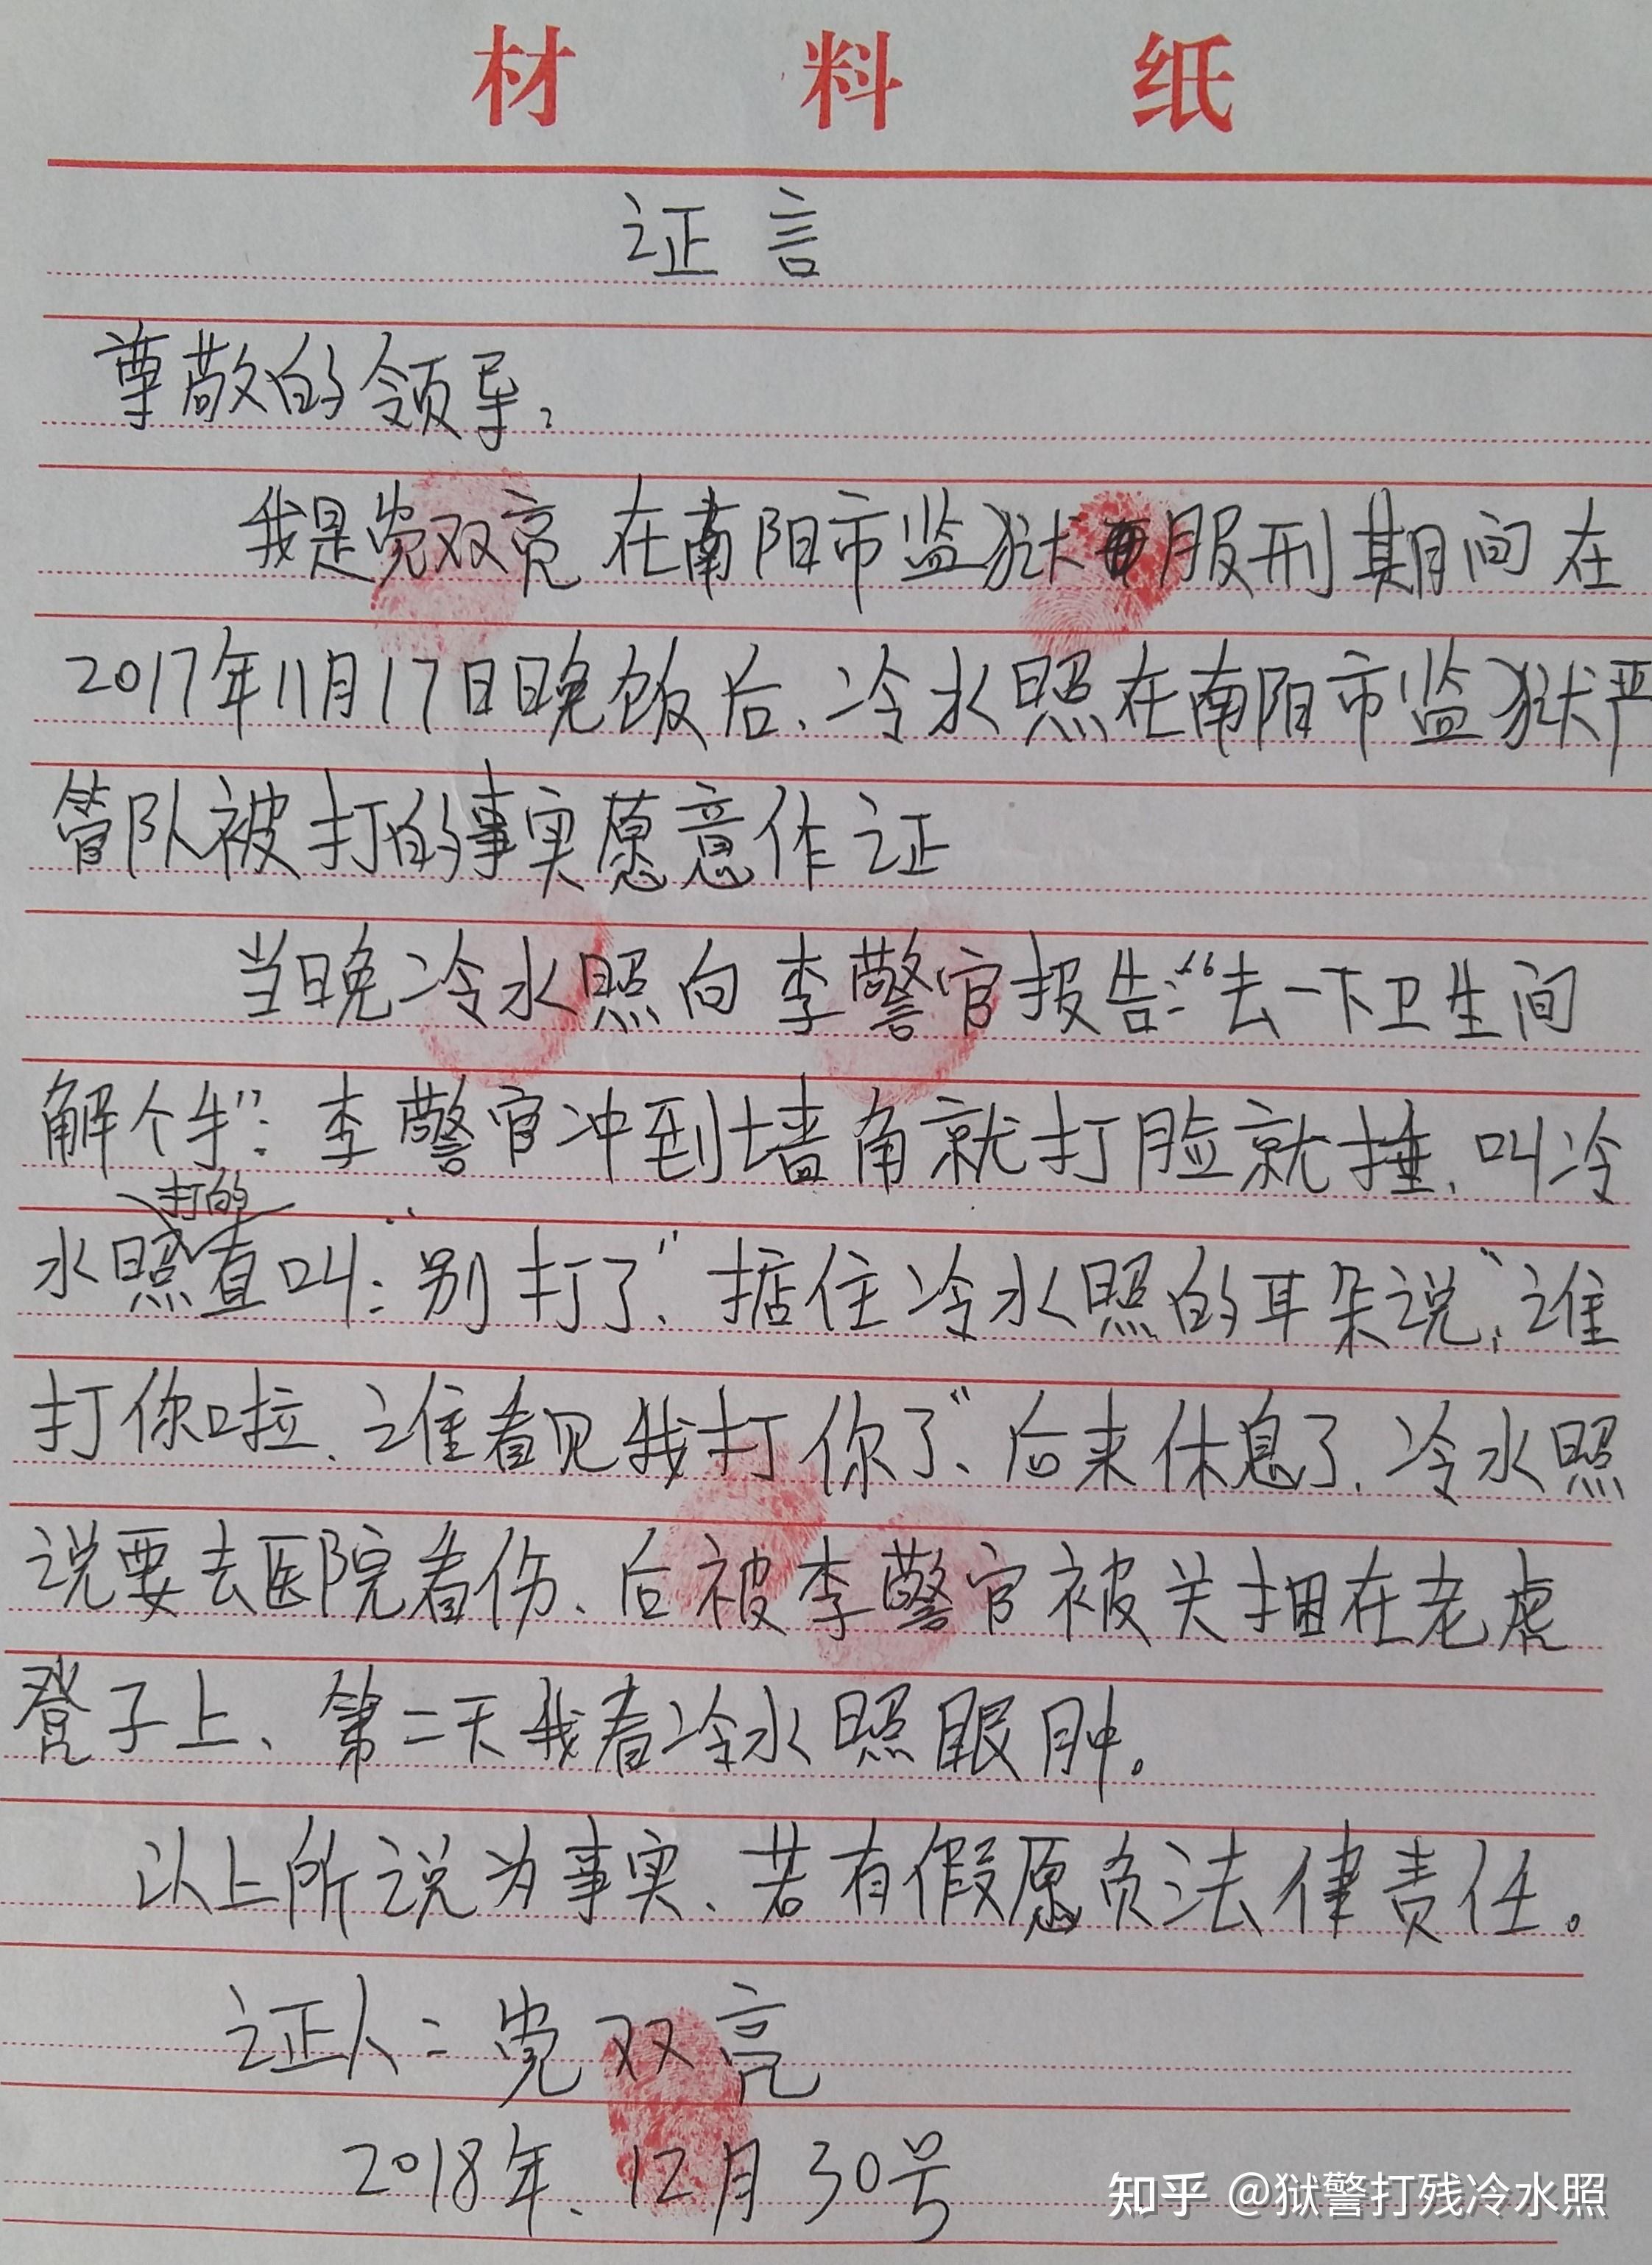 材料纸
证言
尊敬的领导：
我是党双亮在南阳市监狱服刑期间在
2017年11月17日晚饭后、冷水照在南阳市监狱严
管队被打的事实愿意作证
当晚冷水照向李警官报告：“去一下卫生间
解个手”：李警官冲到墙角就打脸就捶、叫冷
打的
水照直叫：“别打了”、掂住冷水照的耳朵说：“谁
打你啦、谁看见我打你了”、后来休息了、冷水照
说要去医院看伤、后被李警官被关捆在老虎
凳子上、第二天我看冷水照眼肿。
以上所说为事实、若有假愿负法律责任。
证人：党双亮
2018年、12月30号
知乎 @狱警打残冷水照